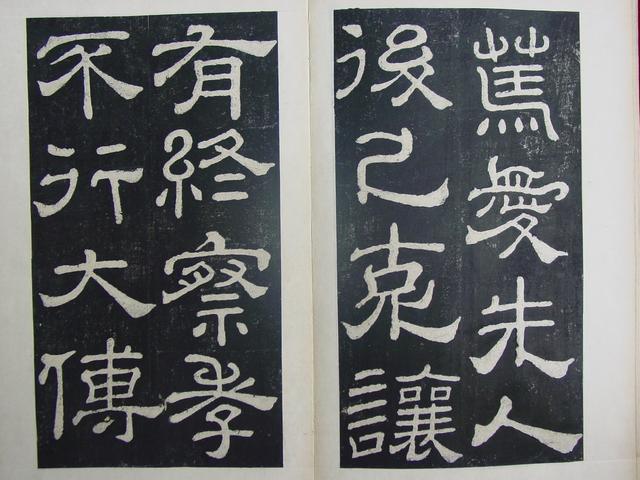 䔍愛先人
後己克讓
有終察孝
不行大傅